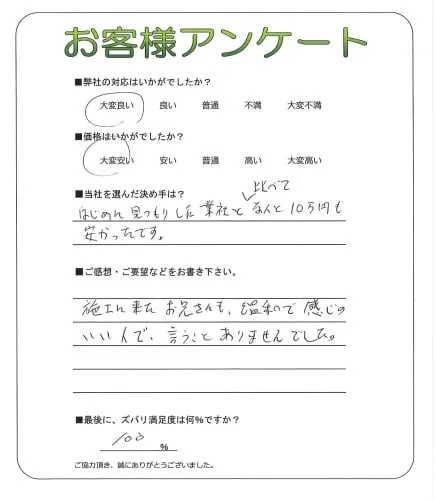 お客様アンケート
■弊社の対応はいかがでしたか?
大変良い 良い 普通 不満 大変不満
■価格はいかがでしたか?
大変安い 安い 普通 高い 大変高い
■当社を選んだ決め手は?
比べて
はじめに見つもりした業社と なんと10万円も
安かったです。
■ご感想・ご要望などをお書き下さい。
施工に来たお兄さんも、温和で感じの
いい人で、言うことありませんでした。
■最後に、ズバリ満足度は何%ですか?
100 %
ご協力頂き、誠にありがとうございました。